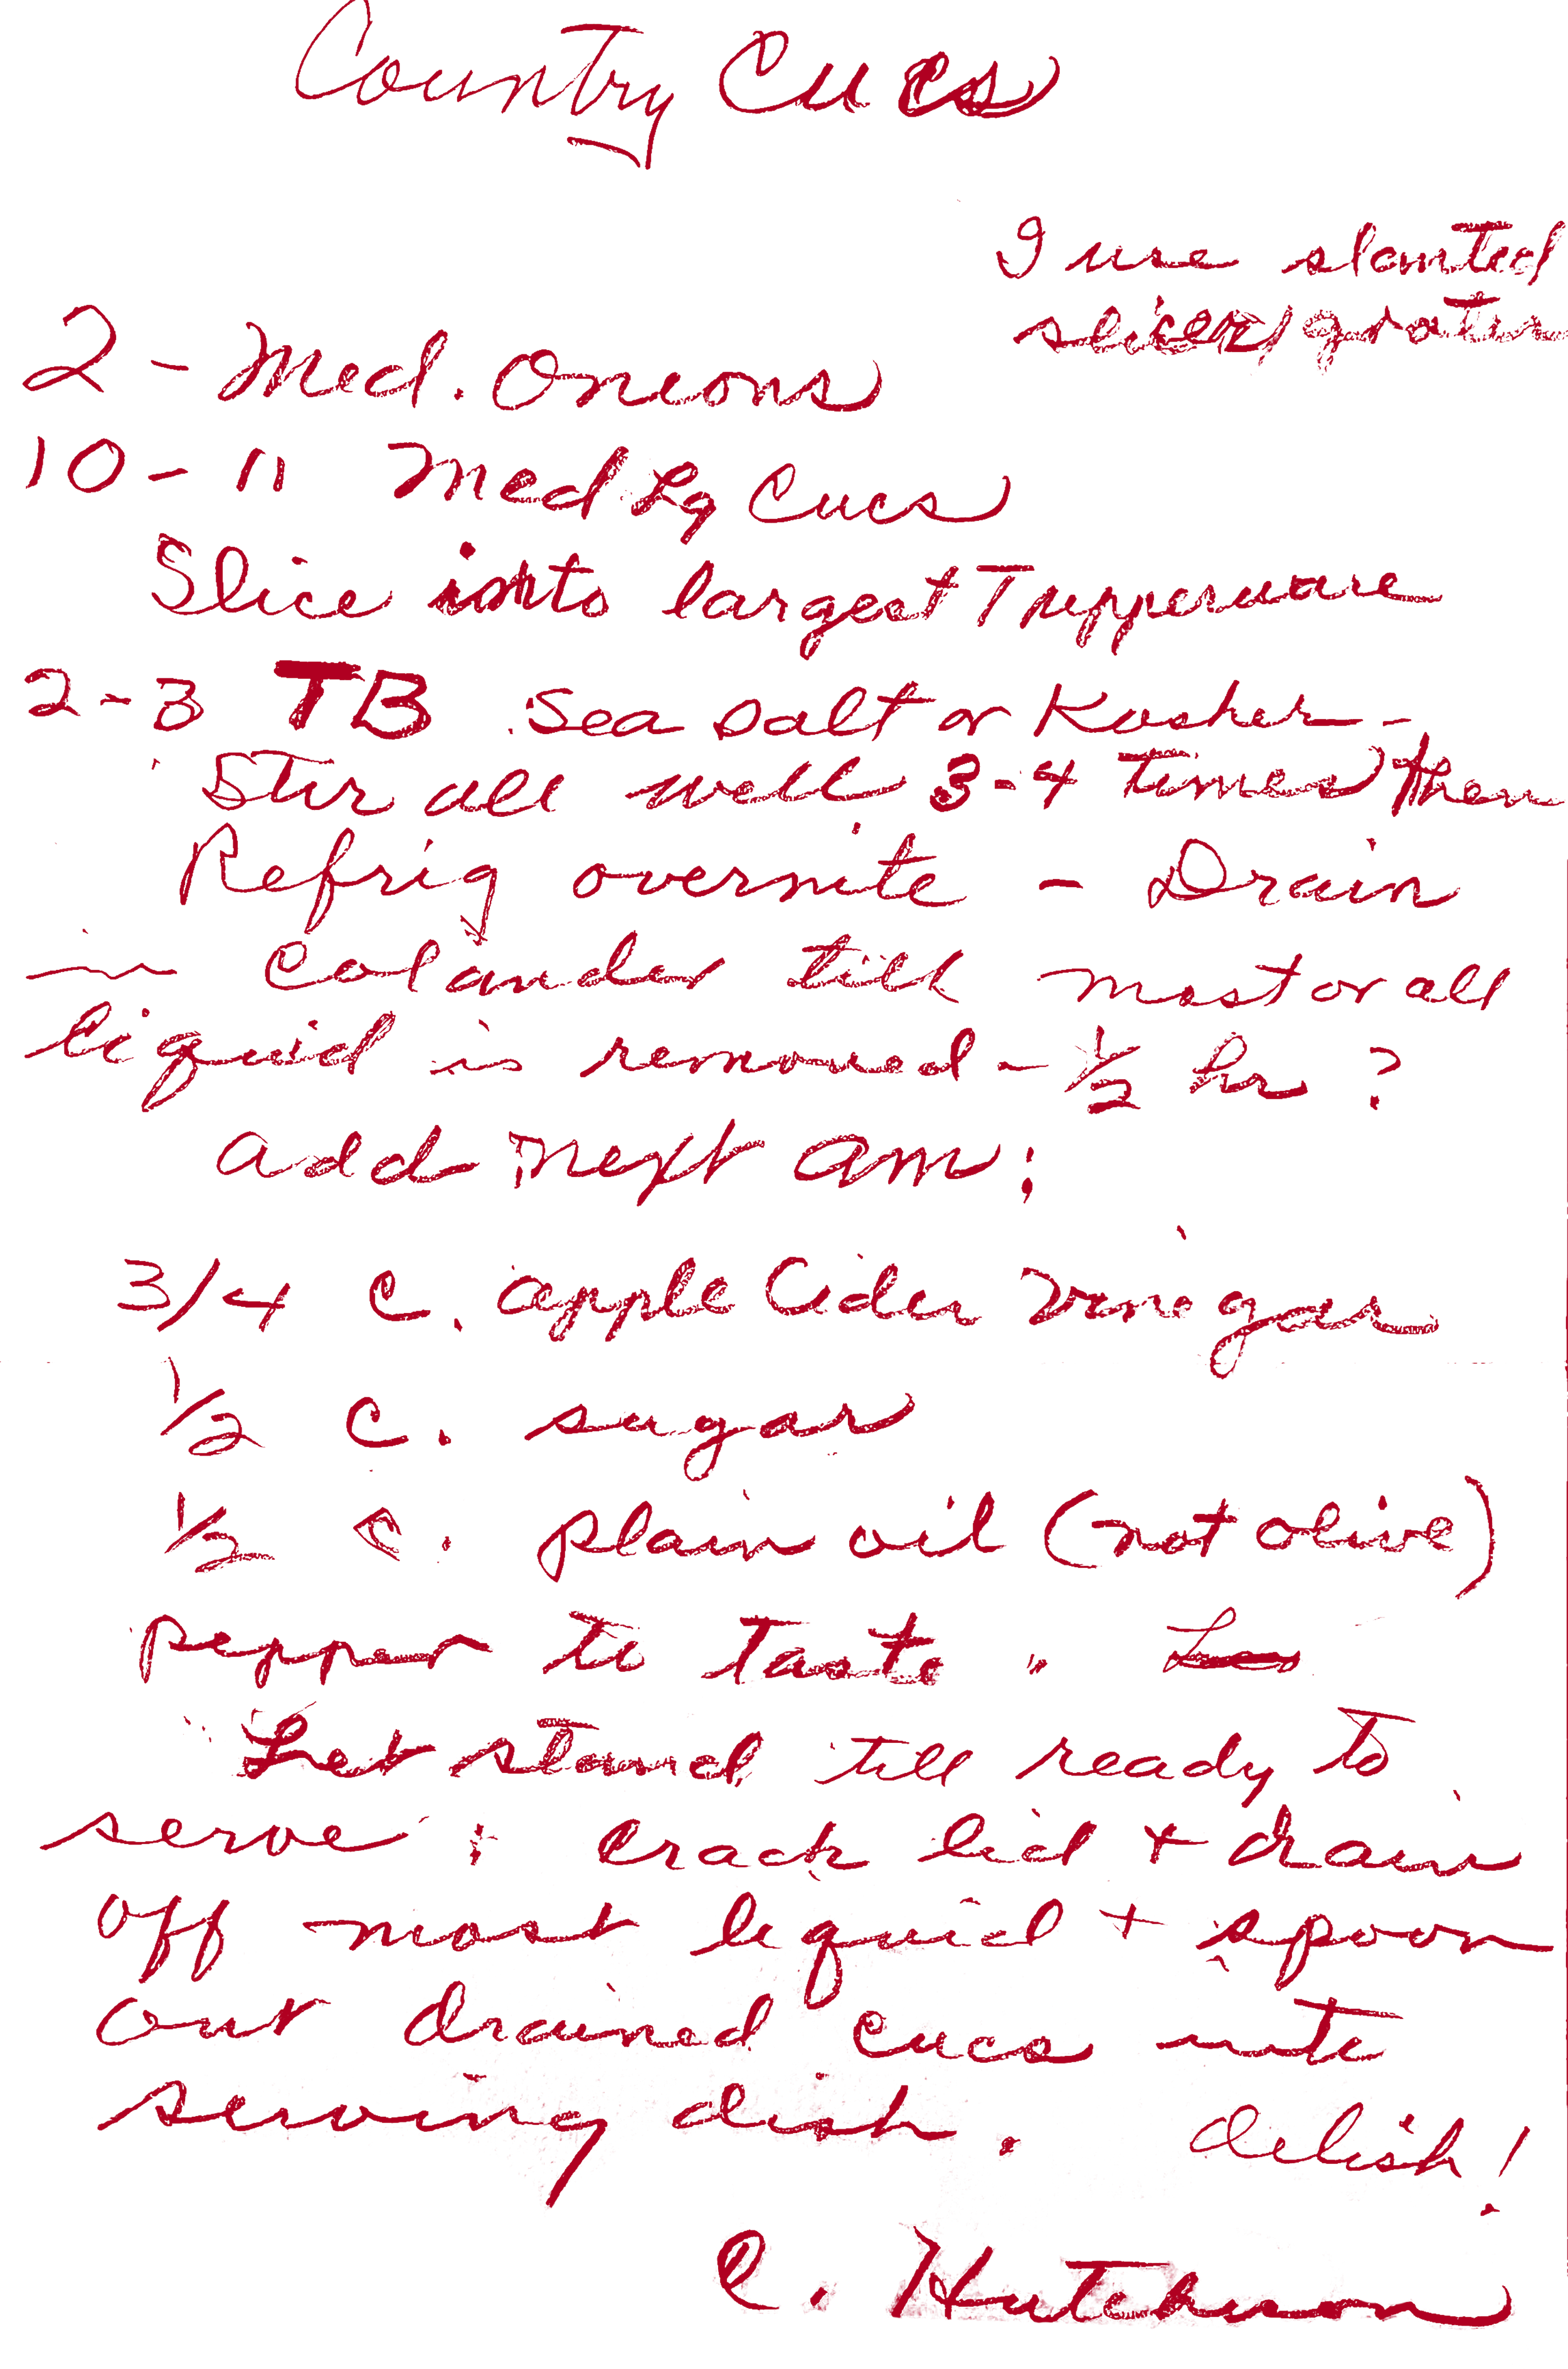 Country Cucs
I use slanted
slicer/grater
2 - Med. Onions
10 - 11 Med Lg Cucs
Slice into largest Tupperware
2 - 3 TB Sea Salt or Kosher -
Stir all well 3-4 times then
Refrig overnite - Drain
in Colander till most or all
liquid is removed - 1/2 hr ?
add next am:
3/4 c. apple Cider Vinegar
1/2 c. sugar
1/2 c. plain oil (not olive)
pepper to taste.
Let stand till ready to
serve; crack lid + drain
off most liquid + spoon
out drained cucs into
serving dish. delish!
C. Hutchison